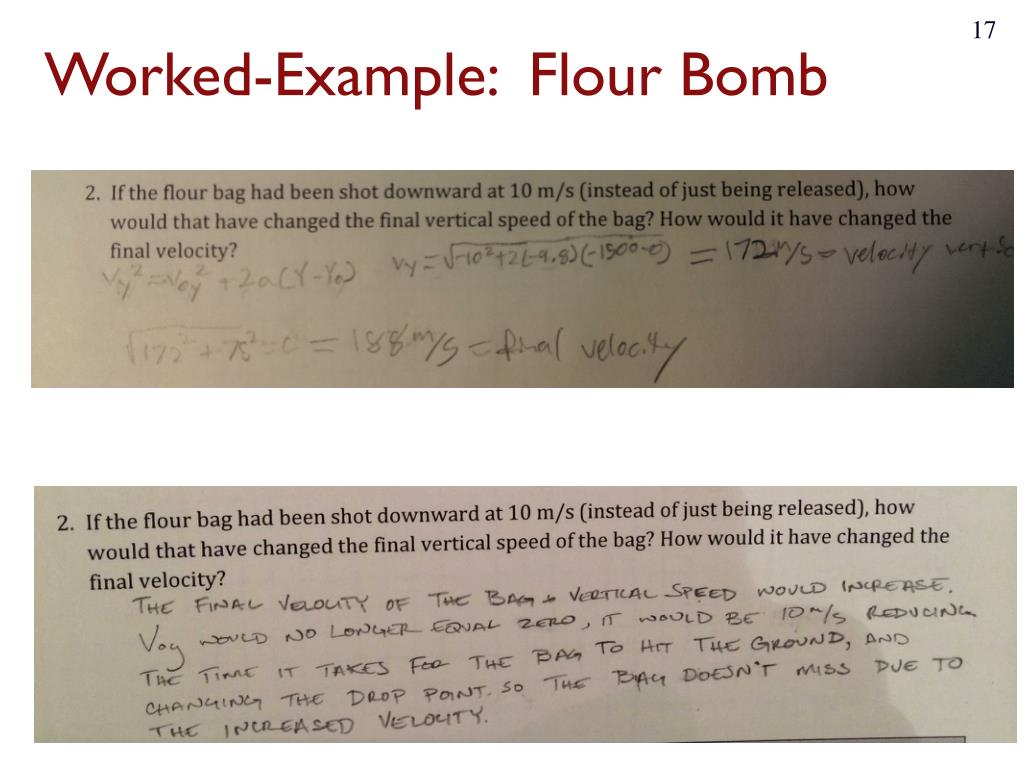 17
Worked-Example: Flour Bomb
2. If the flour bag had been shot downward at 10 m/s (instead of just being released), how
would that have changed the final vertical speed of the bag? How would it have changed the
final velocity?
Vy² = Voy² + 2a(Y-Yo) Vy = √-10²+2(-9.8)(-1500-0) = 172 m/s = velocity vert
√172² + 75² = c = 188 m/s = final velocity
2. If the flour bag had been shot downward at 10 m/s (instead of just being released), how
would that have changed the final vertical speed of the bag? How would it have changed the
final velocity?
THE FINAL VELOCITY OF THE BAG & VERTICAL SPEED WOULD INCREASE.
Voy WOULD NO LONGER EQUAL ZERO, IT WOULD BE 10 m/s REDUCING
THE TIME IT TAKES FOR THE BAG TO HIT THE GROUND, AND
CHANGING THE DROP POINT. SO THE BAG DOESN'T MISS DUE TO
THE INCREASED VELOCITY.